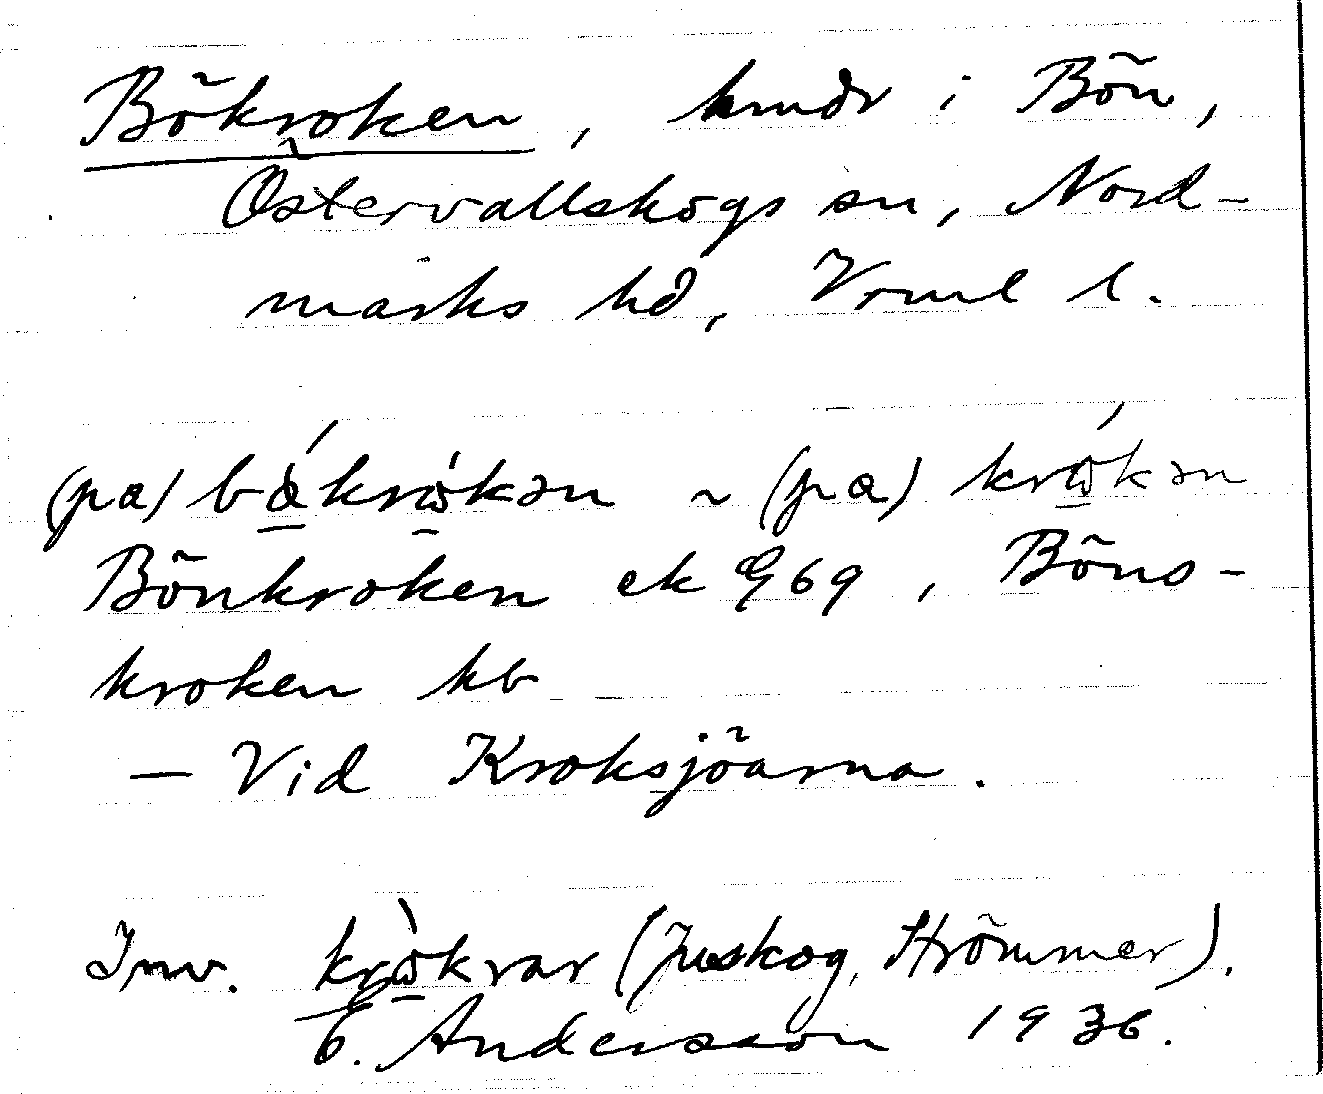 Bökroken, hmdr i Bön,
Östervallskogs sn, Nord-
marks hd, Vrml l.
(pa) bǻkrὼkən ~ (pa) krὼkən
Bönkroken ek G69, Böns-
kroken kb
— Vid Kroksjöarna.
Inv. krὼkrar (Juskog, Strömmer).
E. Andersson 1936.